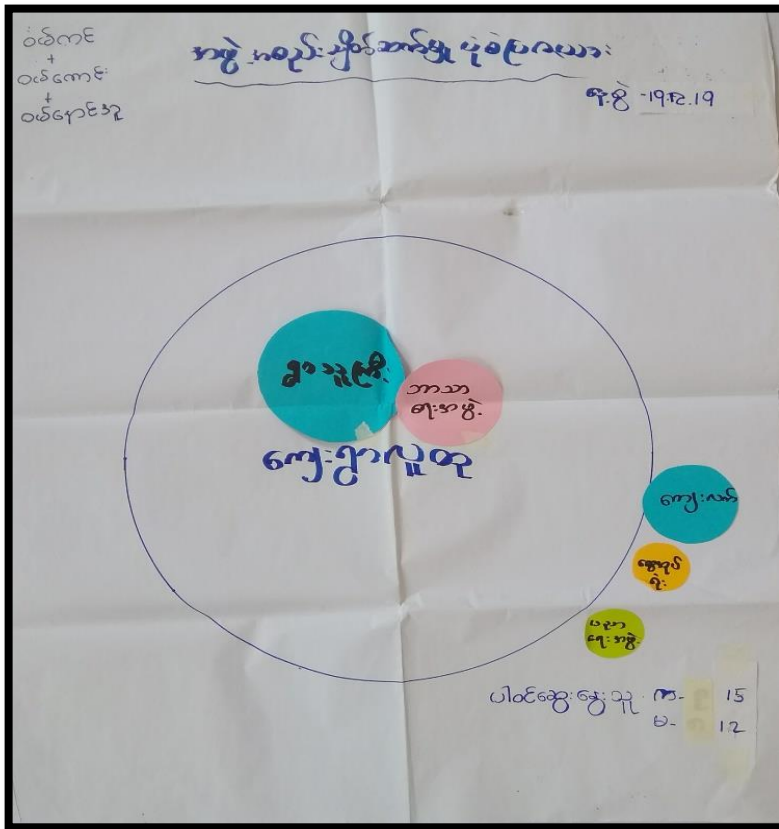 ဝယ်ကင်
+
ဝယ်ကောင်း
+
ဝယ်နောင်အူ
အဖွဲ့အစည်းချိတ်ဆက်မှု ပုံစံပြဇယား
ရေးဆွဲ -19.12.19
ရွာသူကြီး
ဘာသာ
ရေးအဖွဲ့
ကျေးရွာလူထု
ကျေးလက်
ရဲ
ပညာ
ရေးအဖွဲ့
ပါဝင်ဆွေးနွေးသူ ကျ- 15
မ- 12